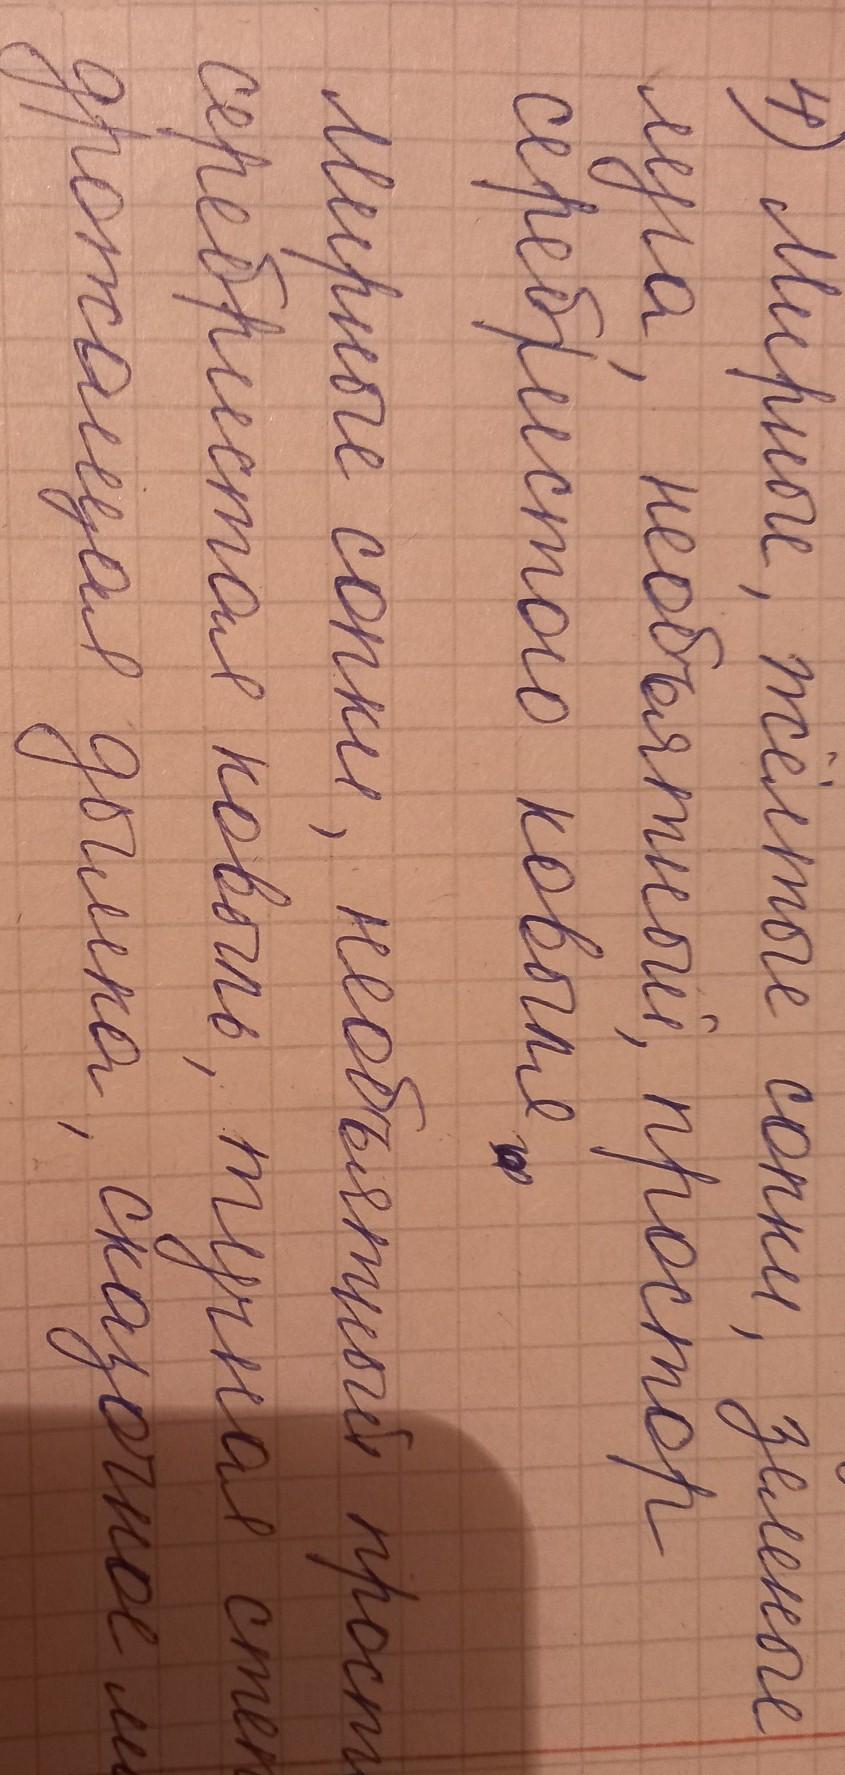 4) Мирные, тёлтые сопки, зеленые
луга, необъятный, простор
серебристого ковыля
Мирные сопки, необъятный прост
серебристая ковыль, тучная степ
дрожащая дымка, сказочное